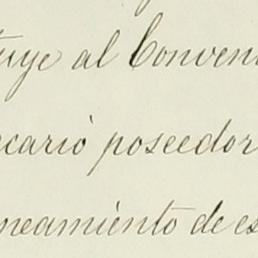 tuye al Conven
ecario poseedor
neamiento de es